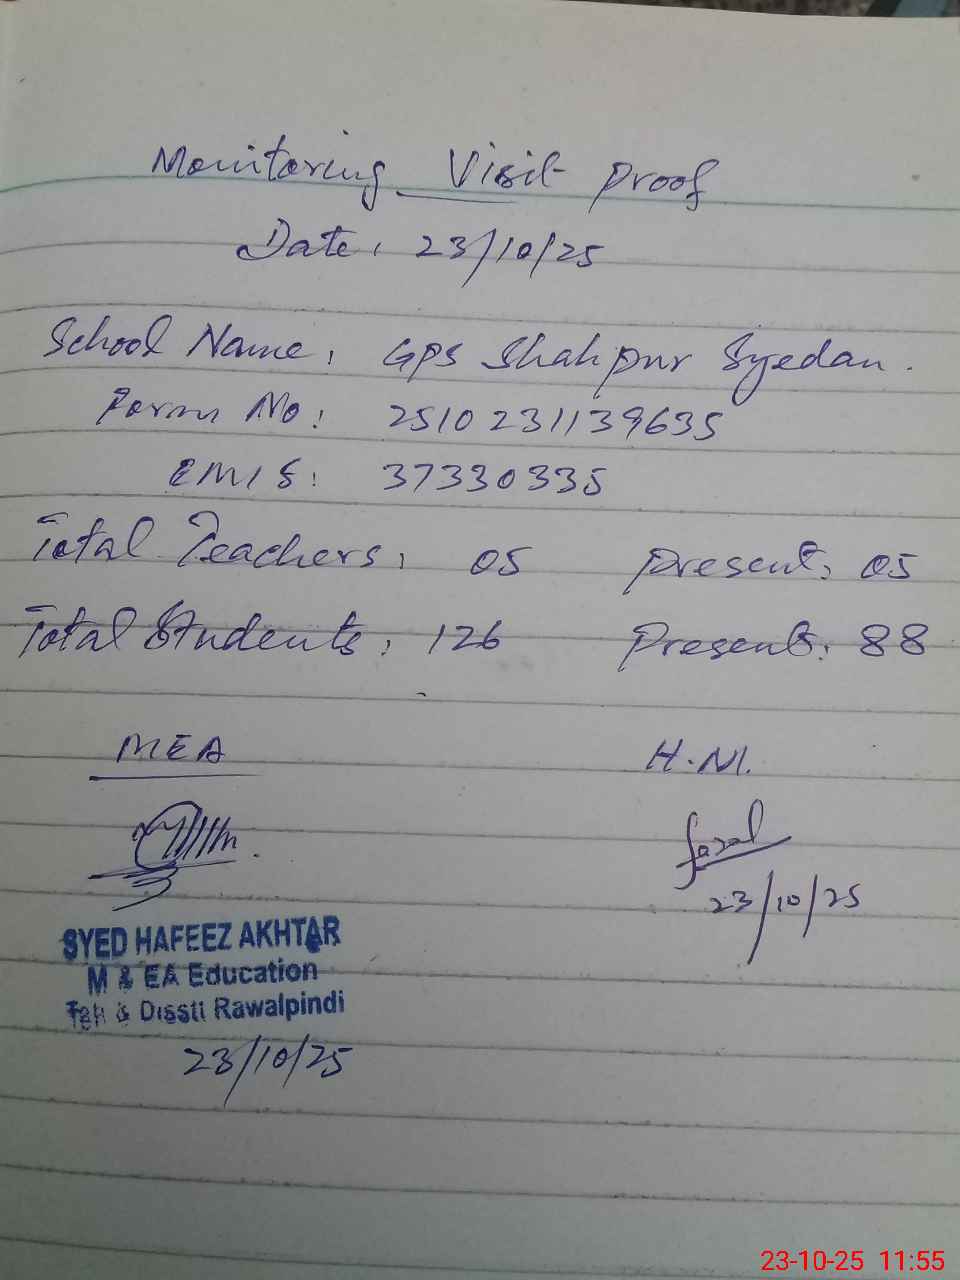 Monitoring Visit Proof
Date: 23/10/25
School Name: GPS Shahpur Syedan.
Form No: 2510231139635
EMIS: 37330335
Total Teachers: 05 Present: 05
Total Students: 126 Present: 88
MEA H.M.
fazal
23/10/25
SYED HAFEEZ AKHTAR
M & EA Education
Teh & Disstt Rawalpindi
23/10/25
23-10-25 11:55